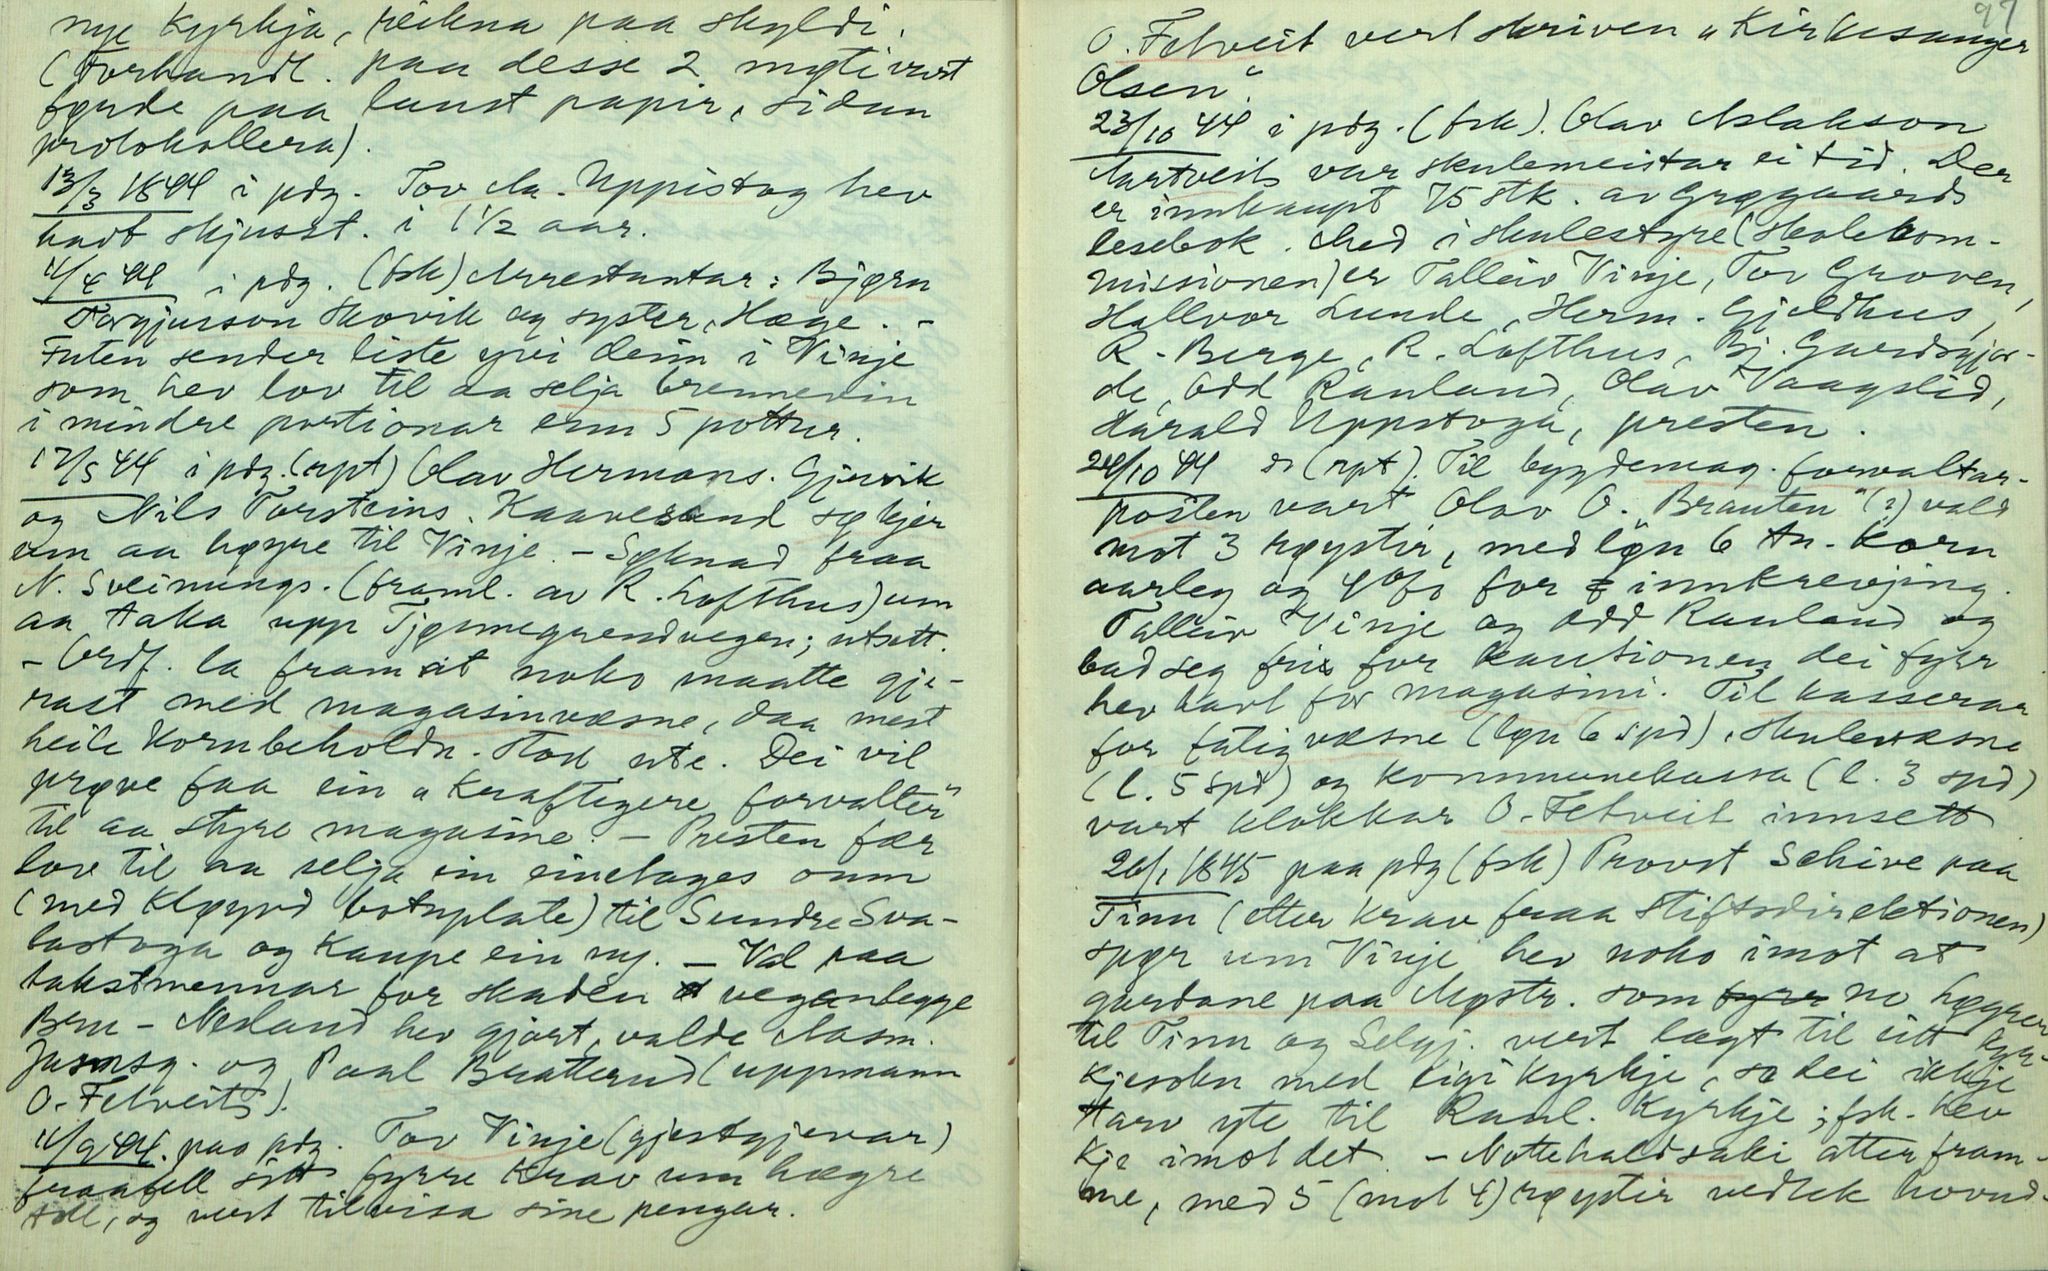 nye Kyrkja, reikna paa skyldi.
(Forhandl. paa desse 2 møti vart
førde paa laust papir, sidan
protokollera).
13/3 1844 i pdg. Tov Aa. Uppistog hev
havt skjusst. i 1 1/2 aar.
11/4 44 i pdg. (fsk) Arrestantar: Bjørn
Torgjusson Skovik og syster, Hæge. -
Futen sender liste yvi deim i Vinje
som hev lov til aa selja brennevin
i mindre portionar enn 5 pottur.
17/5 44 i pdg. (rpt) Olav Hermans. Gjuvik
og Nils Torsteins. Kaavesand søkjer
um aa høyre til Vinje. - Søknad fraa
N. Sveinungs. (framl. av R. Lofthus) um
aa taka upp Tjønnegrendvegen; utsett.
- Ordf. la fram at noko maatte gje-
rast med magasinvæsne, daa mest
heile Kornbeholdn. stod ute. Dei vil
prøve faa ein "Kraftigere forvalter"
til aa styre magasine. - Presten fær
lov til aa selja ein einetages omn
(med Kløyvd botnplate) til Sundre Sva-
lastoga og Kaupe ein ny. - Val paa
takstmennar for skaden vegenlegge
Bru - Nesland hev gjort, valde Aasm.
Jamsg. og Paal Bratterud (uppmann
O. Fetveit).
11/9 44. paa pdg. Tov Vinje (gjestgjevar)
fraafell sitt fyrre Krav um høgre
toll, og vert tilvisa sine pengar.
97
O. Fetveit vert skriven "Kirkesanger
Olsen".
23/10 44 i pdg. (fsk). Olav Aslakson
Aartveit var skulemeistar ei tid. Der
er innkaupt 75 stk. av Grøgaards
lesebok. Med i skulestyre (Skolekom-
missionen) er Talleiv Vinje, Tov Groven,
Hallvor Lunde, Herm. Gjeldhus,
R. Berge, R. Lofthus, Bj. Gardsgjor-
de, Odd Rauland, Olav Vaagslid,
Harald Uppstoga, presten.
24/10 44 (rpt). Til bygdemag. forvaltar-
posten vart Olav O. "Brauten" (?) vald
mot 3 røystir, med løn 6 tn. Korn
aarleg og 4% for innkrevjing.
Talleiv Vinje og Odd Rauland og
bad seg fri for kautionen dei fyrr
hev havt for magasini. Til kasserar
for fatigvæsne (løn 6 spd), skulevæsne
(l. 5 spd) og Kommunekassa (l. 3 spd)
vart klokkar O. Fetveit innsett.
26/1 1845 paa pdg (fsk) Provst Schive paa
Tinn (etter krav fraa Stiftsdirektionen)
spør um Vinje hev noko imot at
gardane paa Møstr. som fyrr no høyrer
til Tinn og Selgj. vert lagt til eitt kyr-
kjesokn med eigi Kyrkje, so dei ikkje
tarv yte til Raul. Kyrkje; fsk. hev
kje imot det. - Nattehaldsaki atter fram-
me, med 5 (mot 4) røystir vedtek hovud-